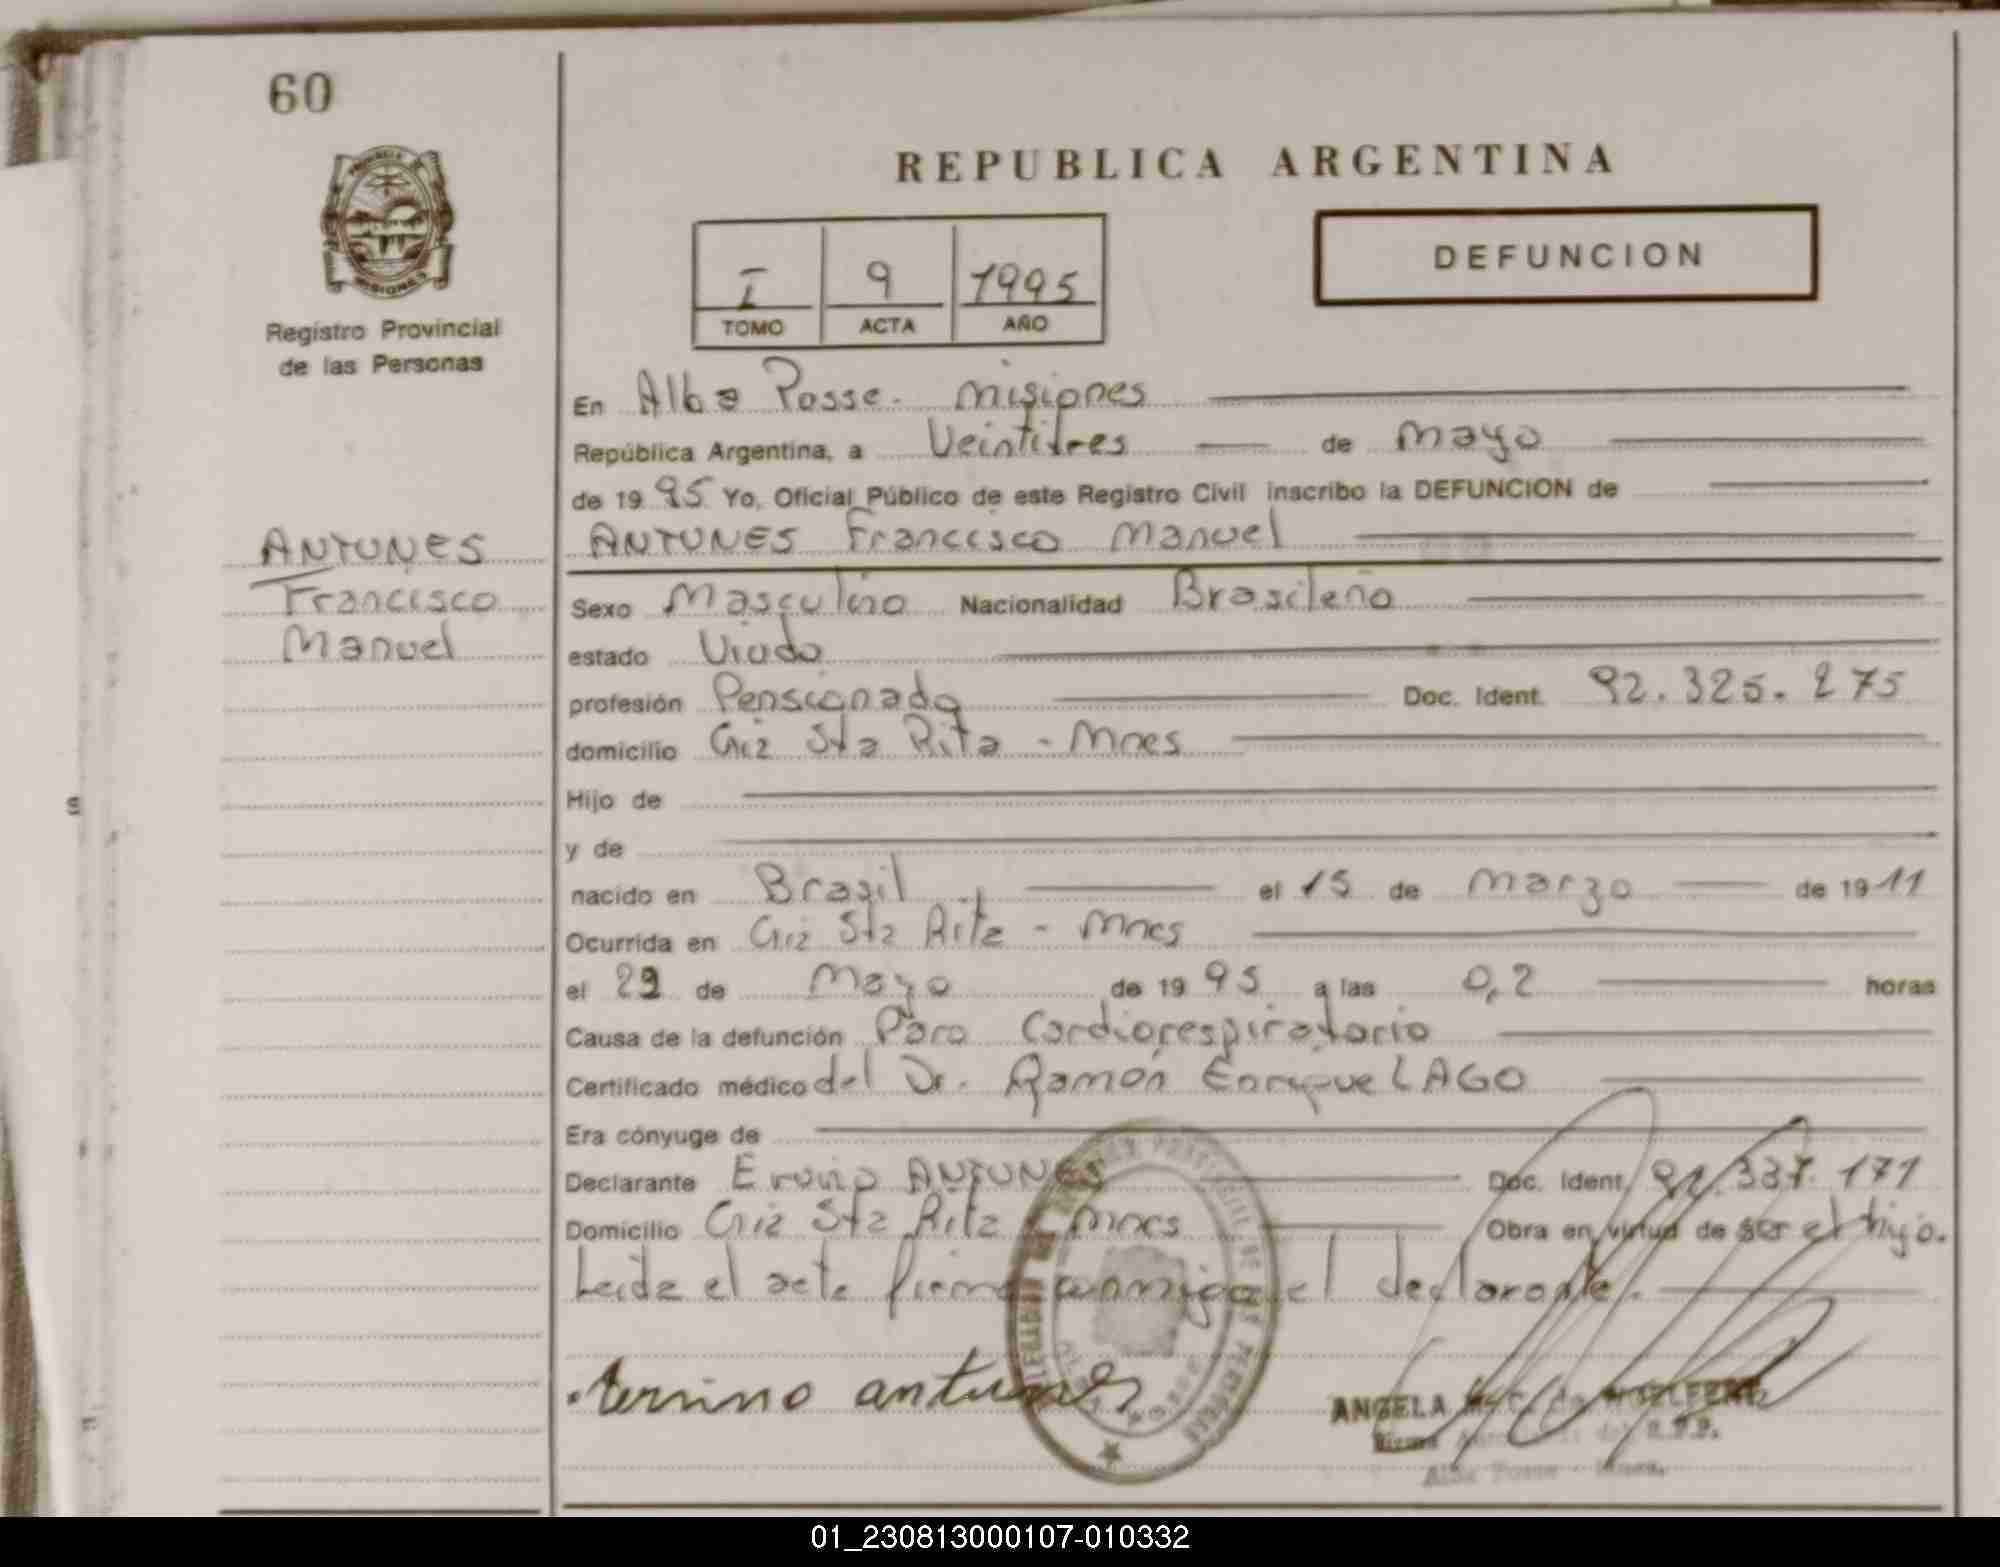 60
REPUBLICA ARGENTINA
DEFUNCION
I 9 1995
TOMO ACTA AÑO
Registro Provincial
de las Personas
En Alba Posse. Misiones
República Argentina, a Veintitres de Mayo
de 19 95 Yo, Oficial Público de este Registro Civil inscribo la DEFUNCION de
ANTUNES
Francisco
Manuel
ANTUNES Francisco Manuel
Sexo Masculino Nacionalidad Brasileño
estado Viudo
profesión Pensionado Doc. Ident. 92.325.275
domicilio Cnia Sta Rita - Mnes
Hijo de
y de
nacido en Brasil el 15 de Marzo de 19 11
Ocurrida en Cnia Sta Rita - Mnes
el de Mayo de 19 95 a las 0,2 horas
Causa de la defunción Paro Cardiorespiratorio
Certificado médico del Dr. Ramón Enrique LAGO
Era cónyuge de
Declarante Ervino ANTUNES Doc. Ident. 171
Domicilio Cnia Sta Rita - Mnes Obra en virtud de ser el hijo.
Leida el acta firma conmigo el declarante.
Ervino antunes
ANGELA
Alba Posse - Mnes.
01_230813000107-010332